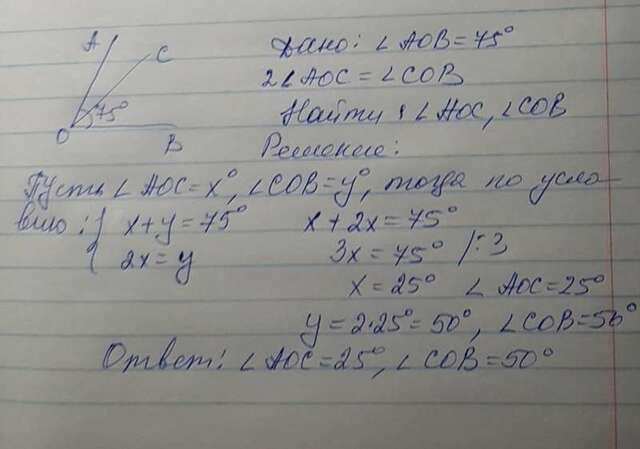 A
C
75°
O
B
Дано: ∠AOB = 75°
2∠AOC = ∠COB
Найти: ∠AOC, ∠COB
Решение:
Пусть ∠AOC = x°, ∠COB = y°, тогда по усло-
вию: { x + y = 75°
2x = y
x + 2x = 75°
3x = 75° |:3
x = 25° ∠AOC = 25°
y = 2·25° = 50°, ∠COB = 50°
Ответ: ∠AOC = 25°, ∠COB = 50°